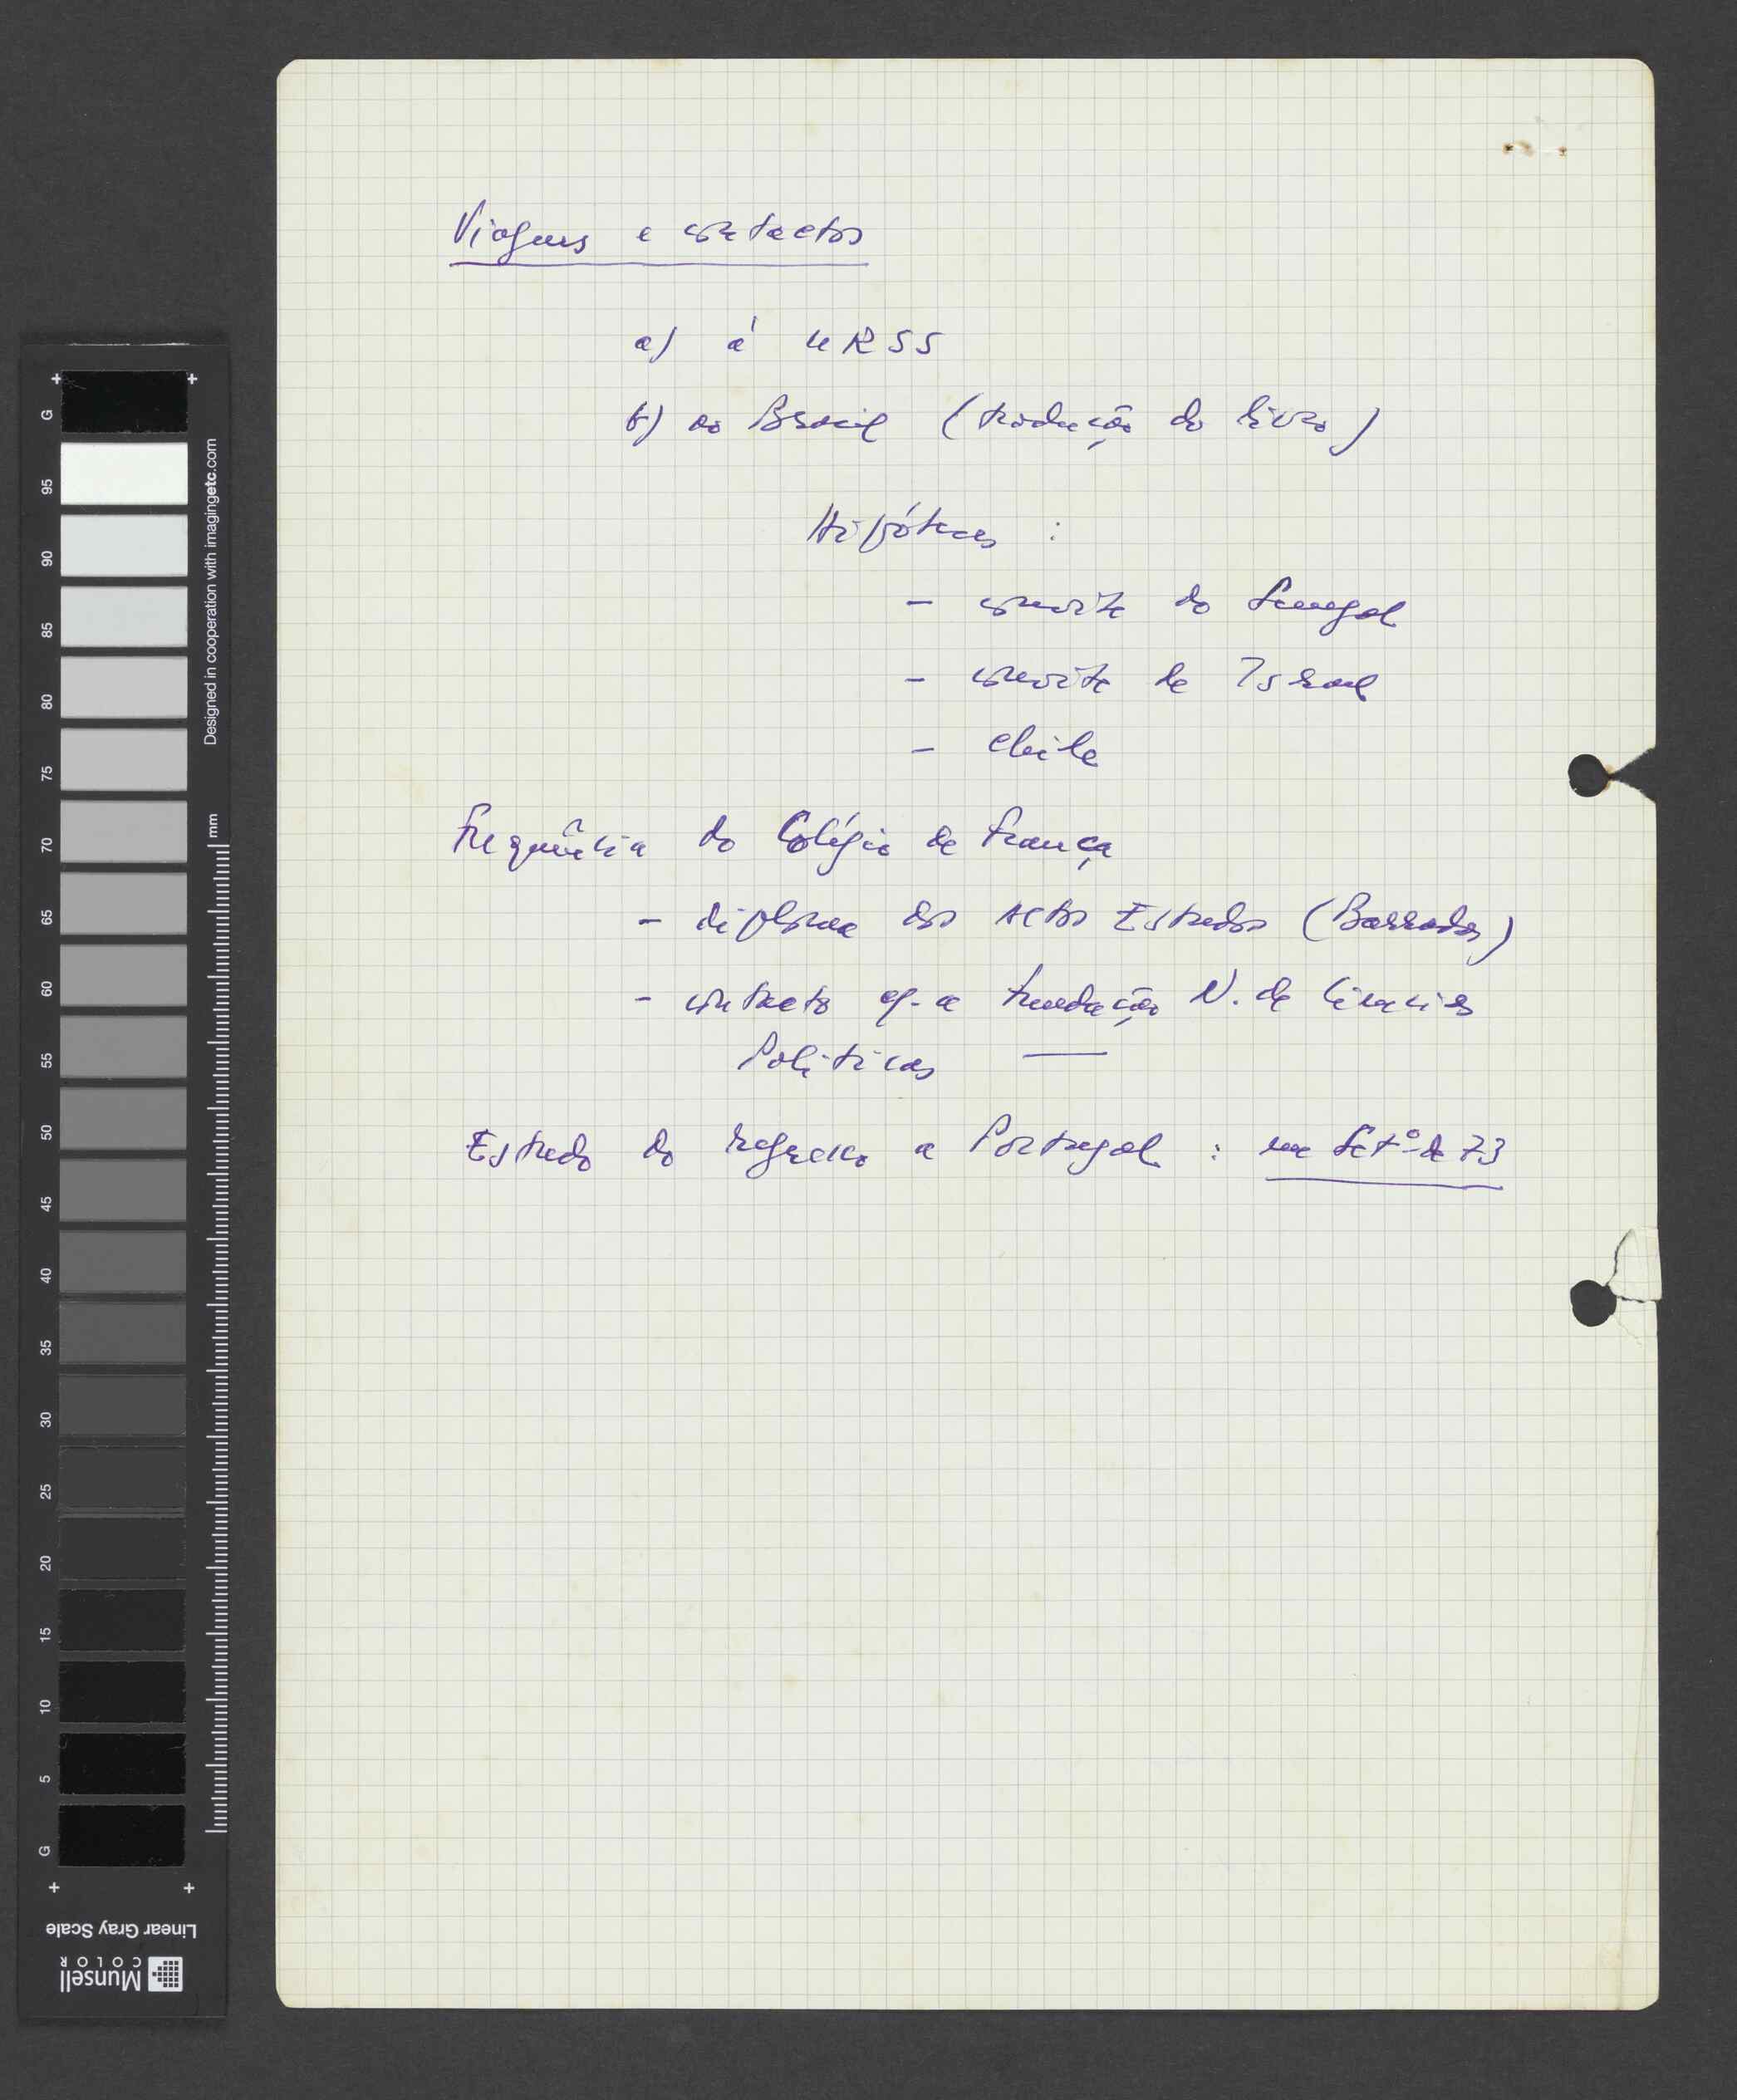 Viagens e contactos
a) á URSS
b) ao Brasil (tradução do livro)
Hipóteses :
- convite do Senegal
- convite de Israel
- Chile
Frequência do Colégio de França
- diploma dos Altos Estudos (Barradas)
- contacto c/ a Fundação N. de Ciencias
Politicas —
Estudo do regresso a Portugal : em Setº de 73
G
95
90
85
80
75
70
65
60
55
50
45
40
35
30
25
20
15
10
5
G
Designed in cooperation with imagingetc.com
mm
Linear Gray Scale
Munsell
COLOR